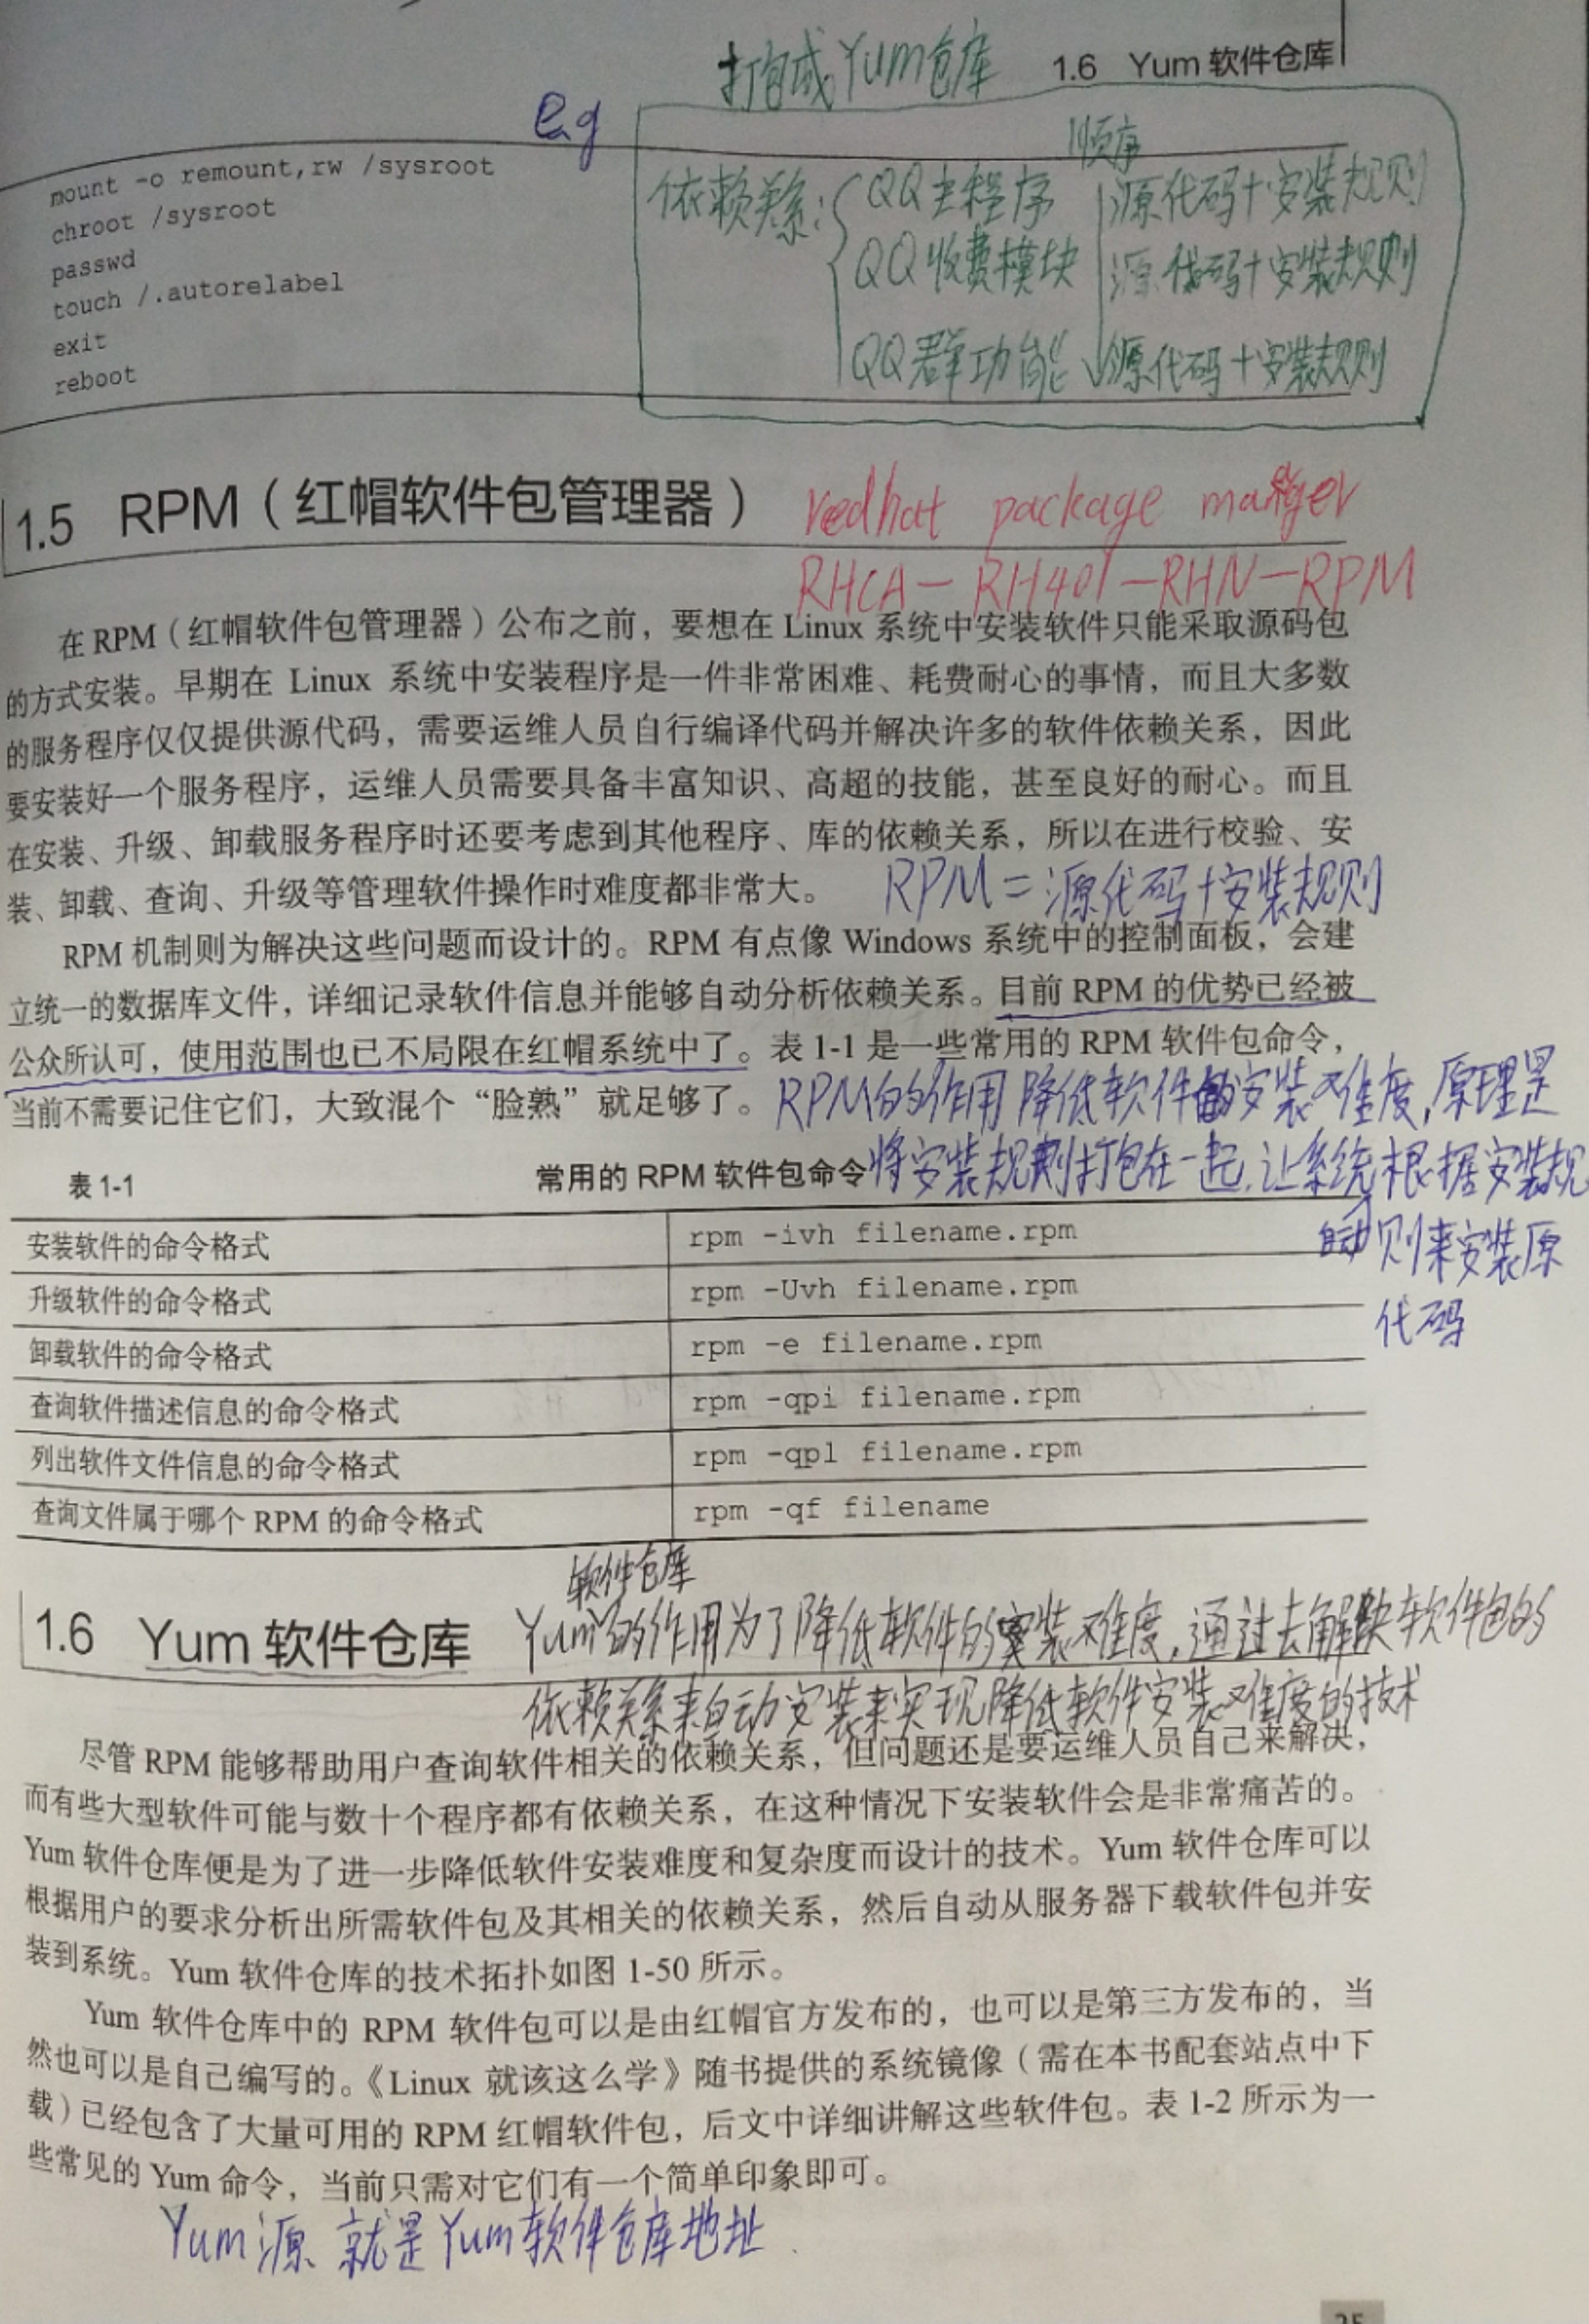 打包成Yum仓库
1.6 Yum 软件仓库
e.g
mount -o remount,rw /sysroot
chroot /sysroot
passwd
touch /.autorelabel
exit
reboot
顺序
依赖关系:
QQ主程序 源代码+安装规则
QQ收费模块 源代码+安装规则
QQ群功能 源代码+安装规则
1.5 RPM（红帽软件包管理器）
redhat package manger
RHCA－RH401－RHN－RPM
在 RPM（红帽软件包管理器）公布之前，要想在 Linux 系统中安装软件只能采取源码包
的方式安装。早期在 Linux 系统中安装程序是一件非常困难、耗费耐心的事情，而且大多数
的服务程序仅仅提供源代码，需要运维人员自行编译代码并解决许多的软件依赖关系，因此
要安装好一个服务程序，运维人员需要具备丰富知识、高超的技能，甚至良好的耐心。而且
在安装、升级、卸载服务程序时还要考虑到其他程序、库的依赖关系，所以在进行校验、安
装、卸载、查询、升级等管理软件操作时难度都非常大。
RPM＝源代码+安装规则
RPM 机制则为解决这些问题而设计的。RPM 有点像 Windows 系统中的控制面板，会建
立统一的数据库文件，详细记录软件信息并能够自动分析依赖关系。目前 RPM 的优势已经被
公众所认可，使用范围也已不局限在红帽系统中了。表 1-1 是一些常用的 RPM 软件包命令，
当前不需要记住它们，大致混个“脸熟”就足够了。
RPM的作用降低软件的安装难度,原理是
将安装规则打包在一起,让系统根据安装规
自动
则来安装原
代码
表 1-1
常用的 RPM 软件包命令
安装软件的命令格式 rpm -ivh filename.rpm
升级软件的命令格式 rpm -Uvh filename.rpm
卸载软件的命令格式 rpm -e filename.rpm
查询软件描述信息的命令格式 rpm -qpi filename.rpm
列出软件文件信息的命令格式 rpm -qpl filename.rpm
查询文件属于哪个 RPM 的命令格式 rpm -qf filename
软件仓库
1.6 Yum 软件仓库
Yum的作用为了降低软件的安装难度,通过去解决软件包的
依赖关系来自动安装来实现降低软件安装难度的技术
尽管 RPM 能够帮助用户查询软件相关的依赖关系，但问题还是要运维人员自己来解决，
而有些大型软件可能与数十个程序都有依赖关系，在这种情况下安装软件会是非常痛苦的。
Yum 软件仓库便是为了进一步降低软件安装难度和复杂度而设计的技术。Yum 软件仓库可以
根据用户的要求分析出所需软件包及其相关的依赖关系，然后自动从服务器下载软件包并安
装到系统。Yum 软件仓库的技术拓扑如图 1-50 所示。
Yum 软件仓库中的 RPM 软件包可以是由红帽官方发布的，也可以是第三方发布的，当
然也可以是自己编写的。《Linux 就该这么学》随书提供的系统镜像（需在本书配套站点中下
载）已经包含了大量可用的 RPM 红帽软件包，后文中详细讲解这些软件包。表 1-2 所示为一
些常见的 Yum 命令，当前只需对它们有一个简单印象即可。
Yum源 就是Yum软件仓库地址